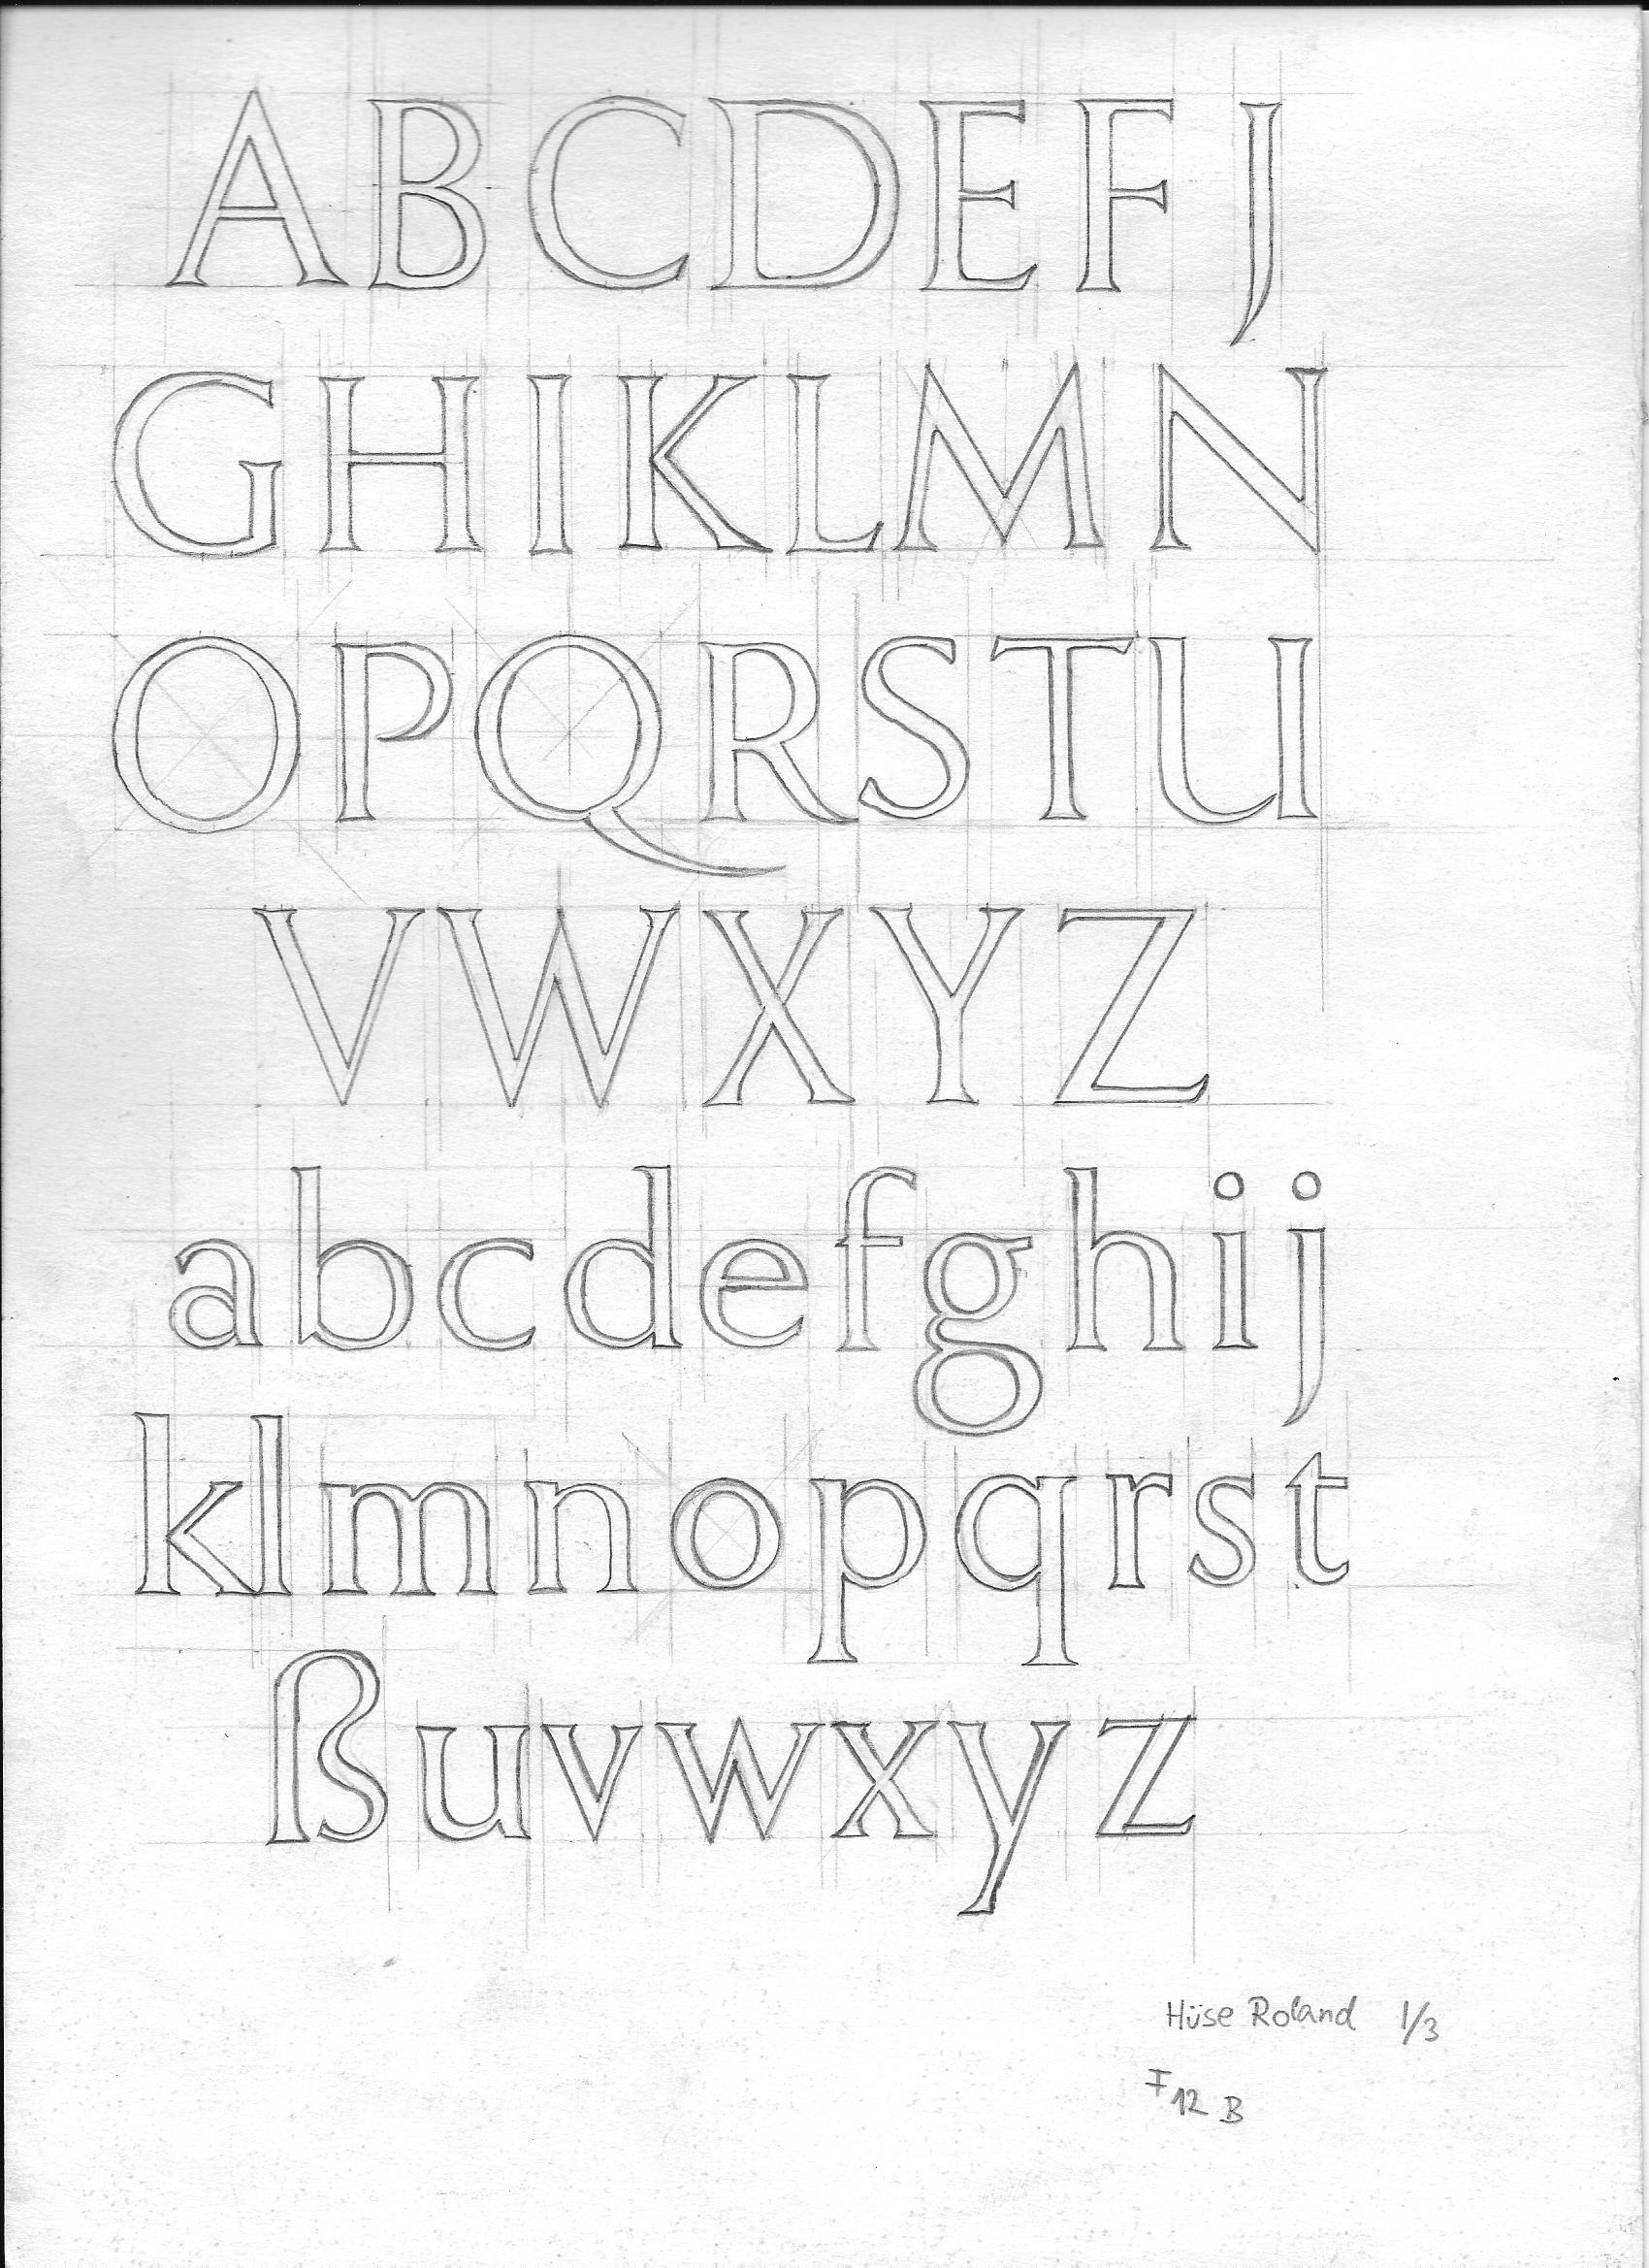 ABCDEFJ
GHIKLMN
OPQRSTU
VWXYZ
abcdefghij
klmnopqrst
ßuvwxyz
Hüse Roland 1/3
F 12 B